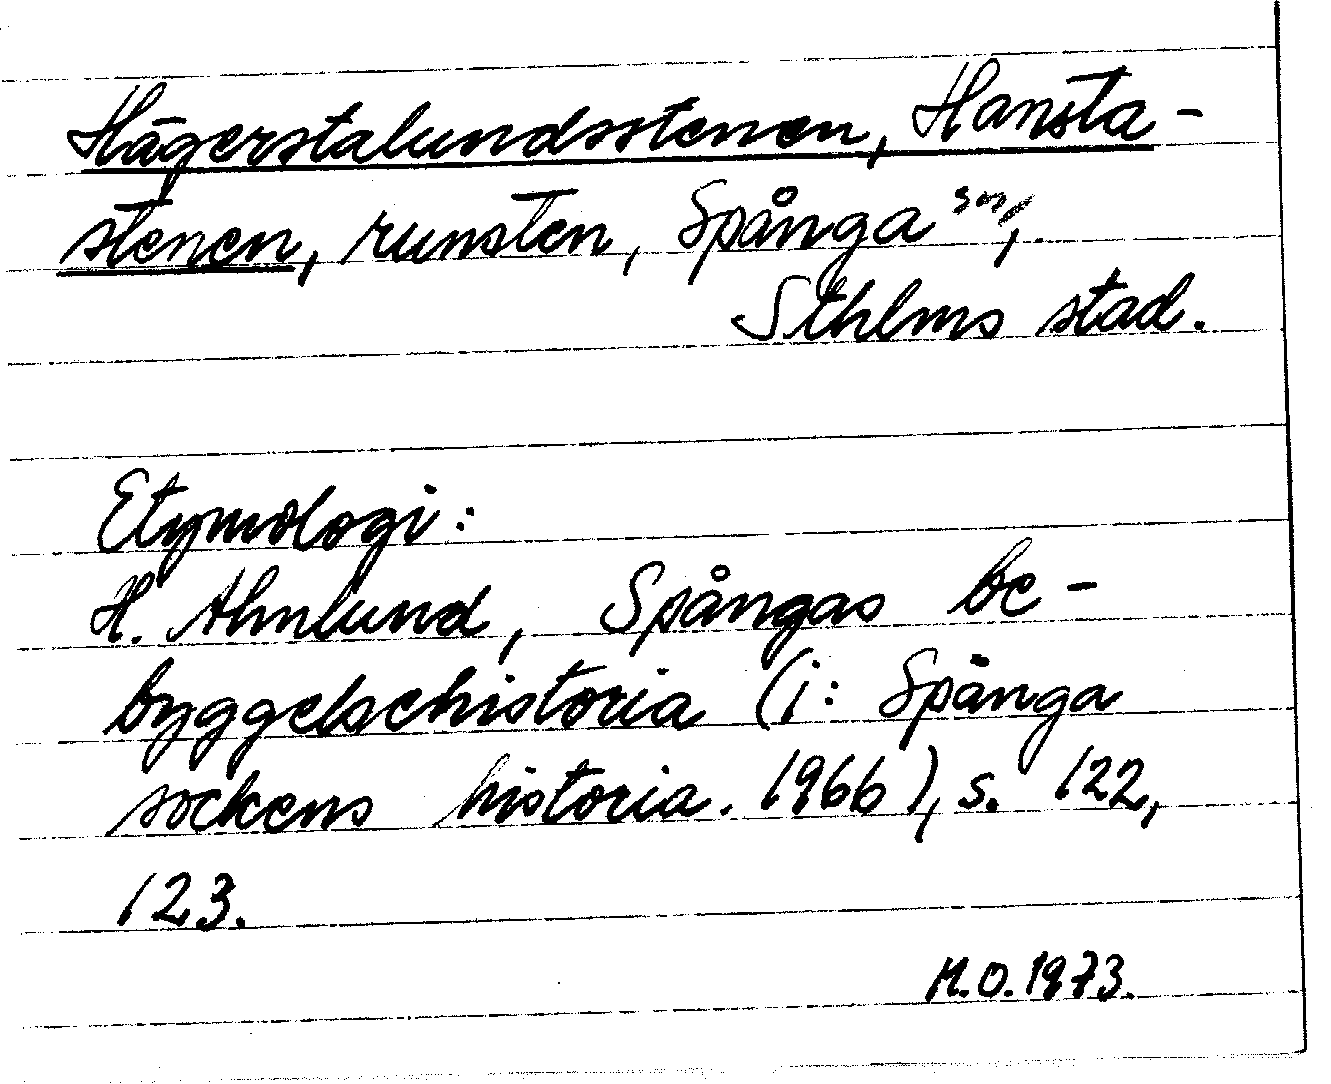 Hägerstalundsstenen, Hansta-
stenen, runsten, Spånga sn,
Sthlms stad.
Etymologi:
H. Ahnlund, Spångas be-
byggelsehistoria (i: Spånga
sockens historia. 1966), s. 122,
123.
M.O. 1973.